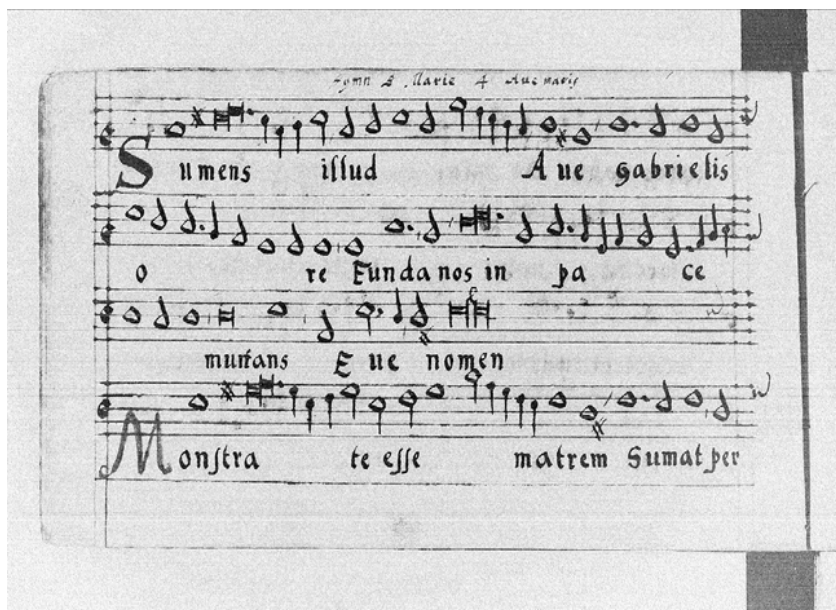 Hymn Marie 4 Aue maris
Sumens illud Aue gabrielis
o re Funda nos in pa ce
mutans Eue nomen
Monſtra te eſſe matrem Sumat per